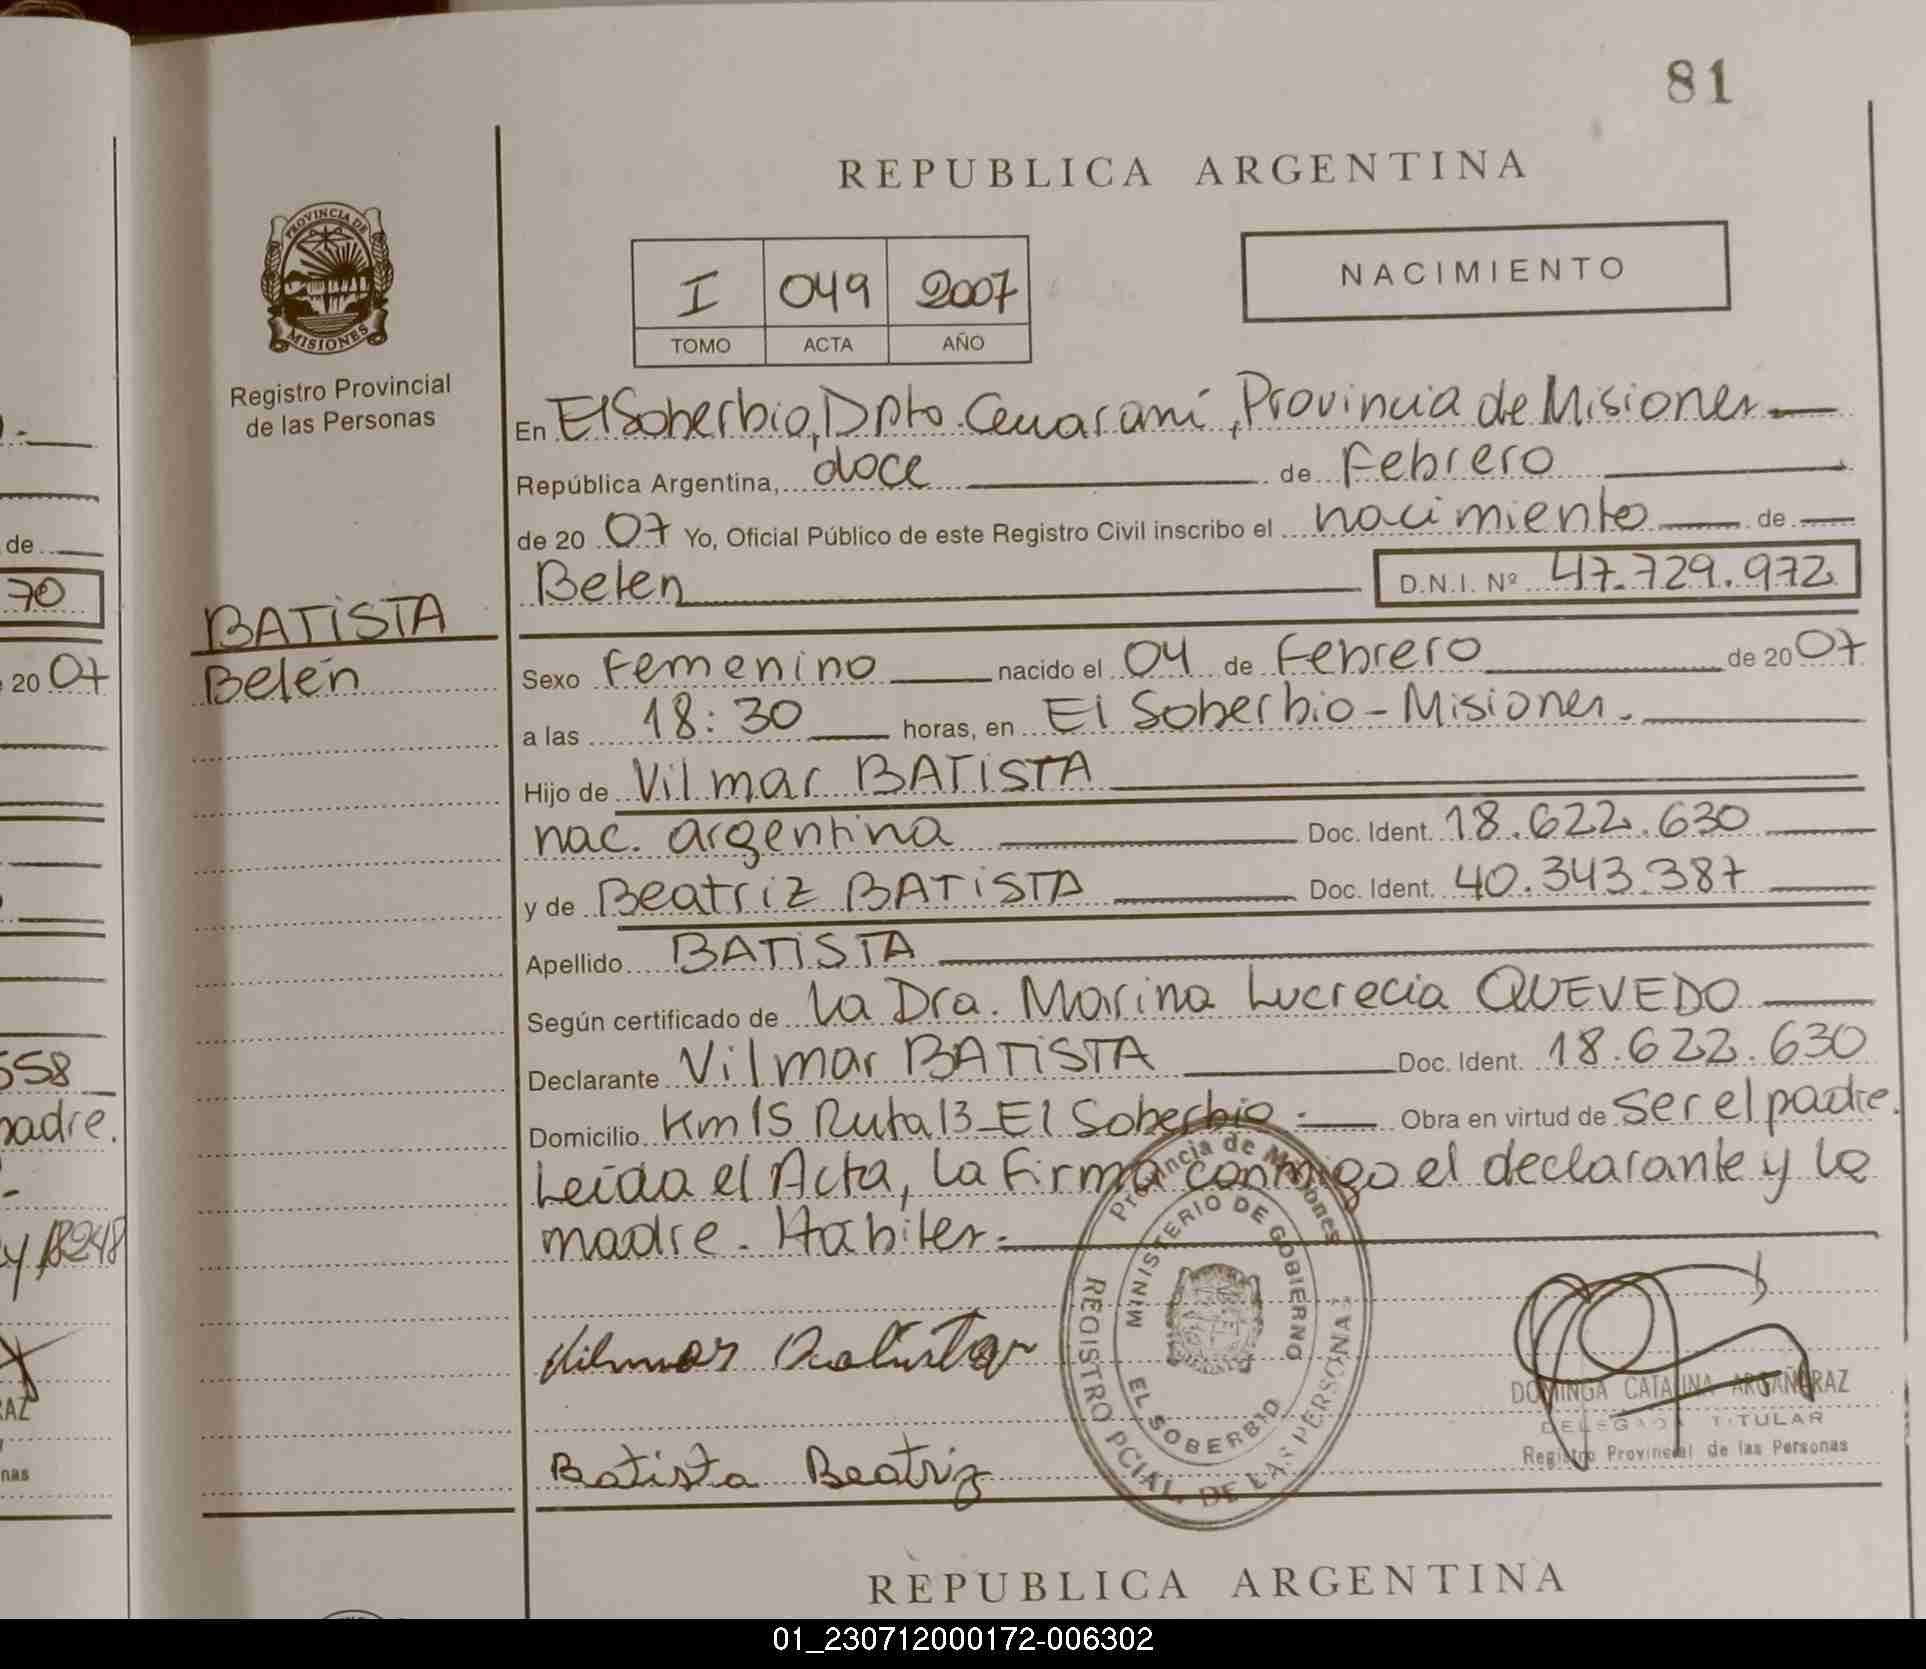 81
REPUBLICA ARGENTINA
PROVINCIA DE
MISIONES
Registro Provincial
de las Personas
I 049 2007
TOMO ACTA AÑO
NACIMIENTO
En El Soberbio, Dpto. Guaraní, Provincia de Misiones
República Argentina, doce de Febrero
de 20 07 Yo, Oficial Público de este Registro Civil inscribo el nacimiento de
Belen D.N.I. Nº 47.729.972
BATISTA
Belén
Sexo Femenino nacido el 04 de Febrero de 20 07
a las 18:30 horas, en El Soberbio - Misiones.
Hijo de Vilmar BATISTA
nac. argentina Doc. Ident. 18.622.630
y de Beatriz BATISTA Doc. Ident. 40.343.387
Apellido BATISTA
Según certificado de La Dra. Marina Lucrecia QUEVEDO
Declarante Vilmar BATISTA Doc. Ident. 18.622.630
Domicilio Km 15 Ruta 13 - El Soberbio.- Obra en virtud de ser el padre.
Leída el Acta, La Firma conmigo el declarante y la
madre. Habiles.-
Provincia de Misiones
MINISTERIO DE GOBIERNO
EL SOBERBIO
REGISTRO PCIAL. DE LAS PERSONAS
Vilmar Batista
Batista Beatriz
DOMINGA CATALINA ARGAÑARAZ
DELEGADA TITULAR
Registro Provincial de las Personas
REPUBLICA ARGENTINA
de
70
20 07
558
madre.
nas
01_230712000172-006302